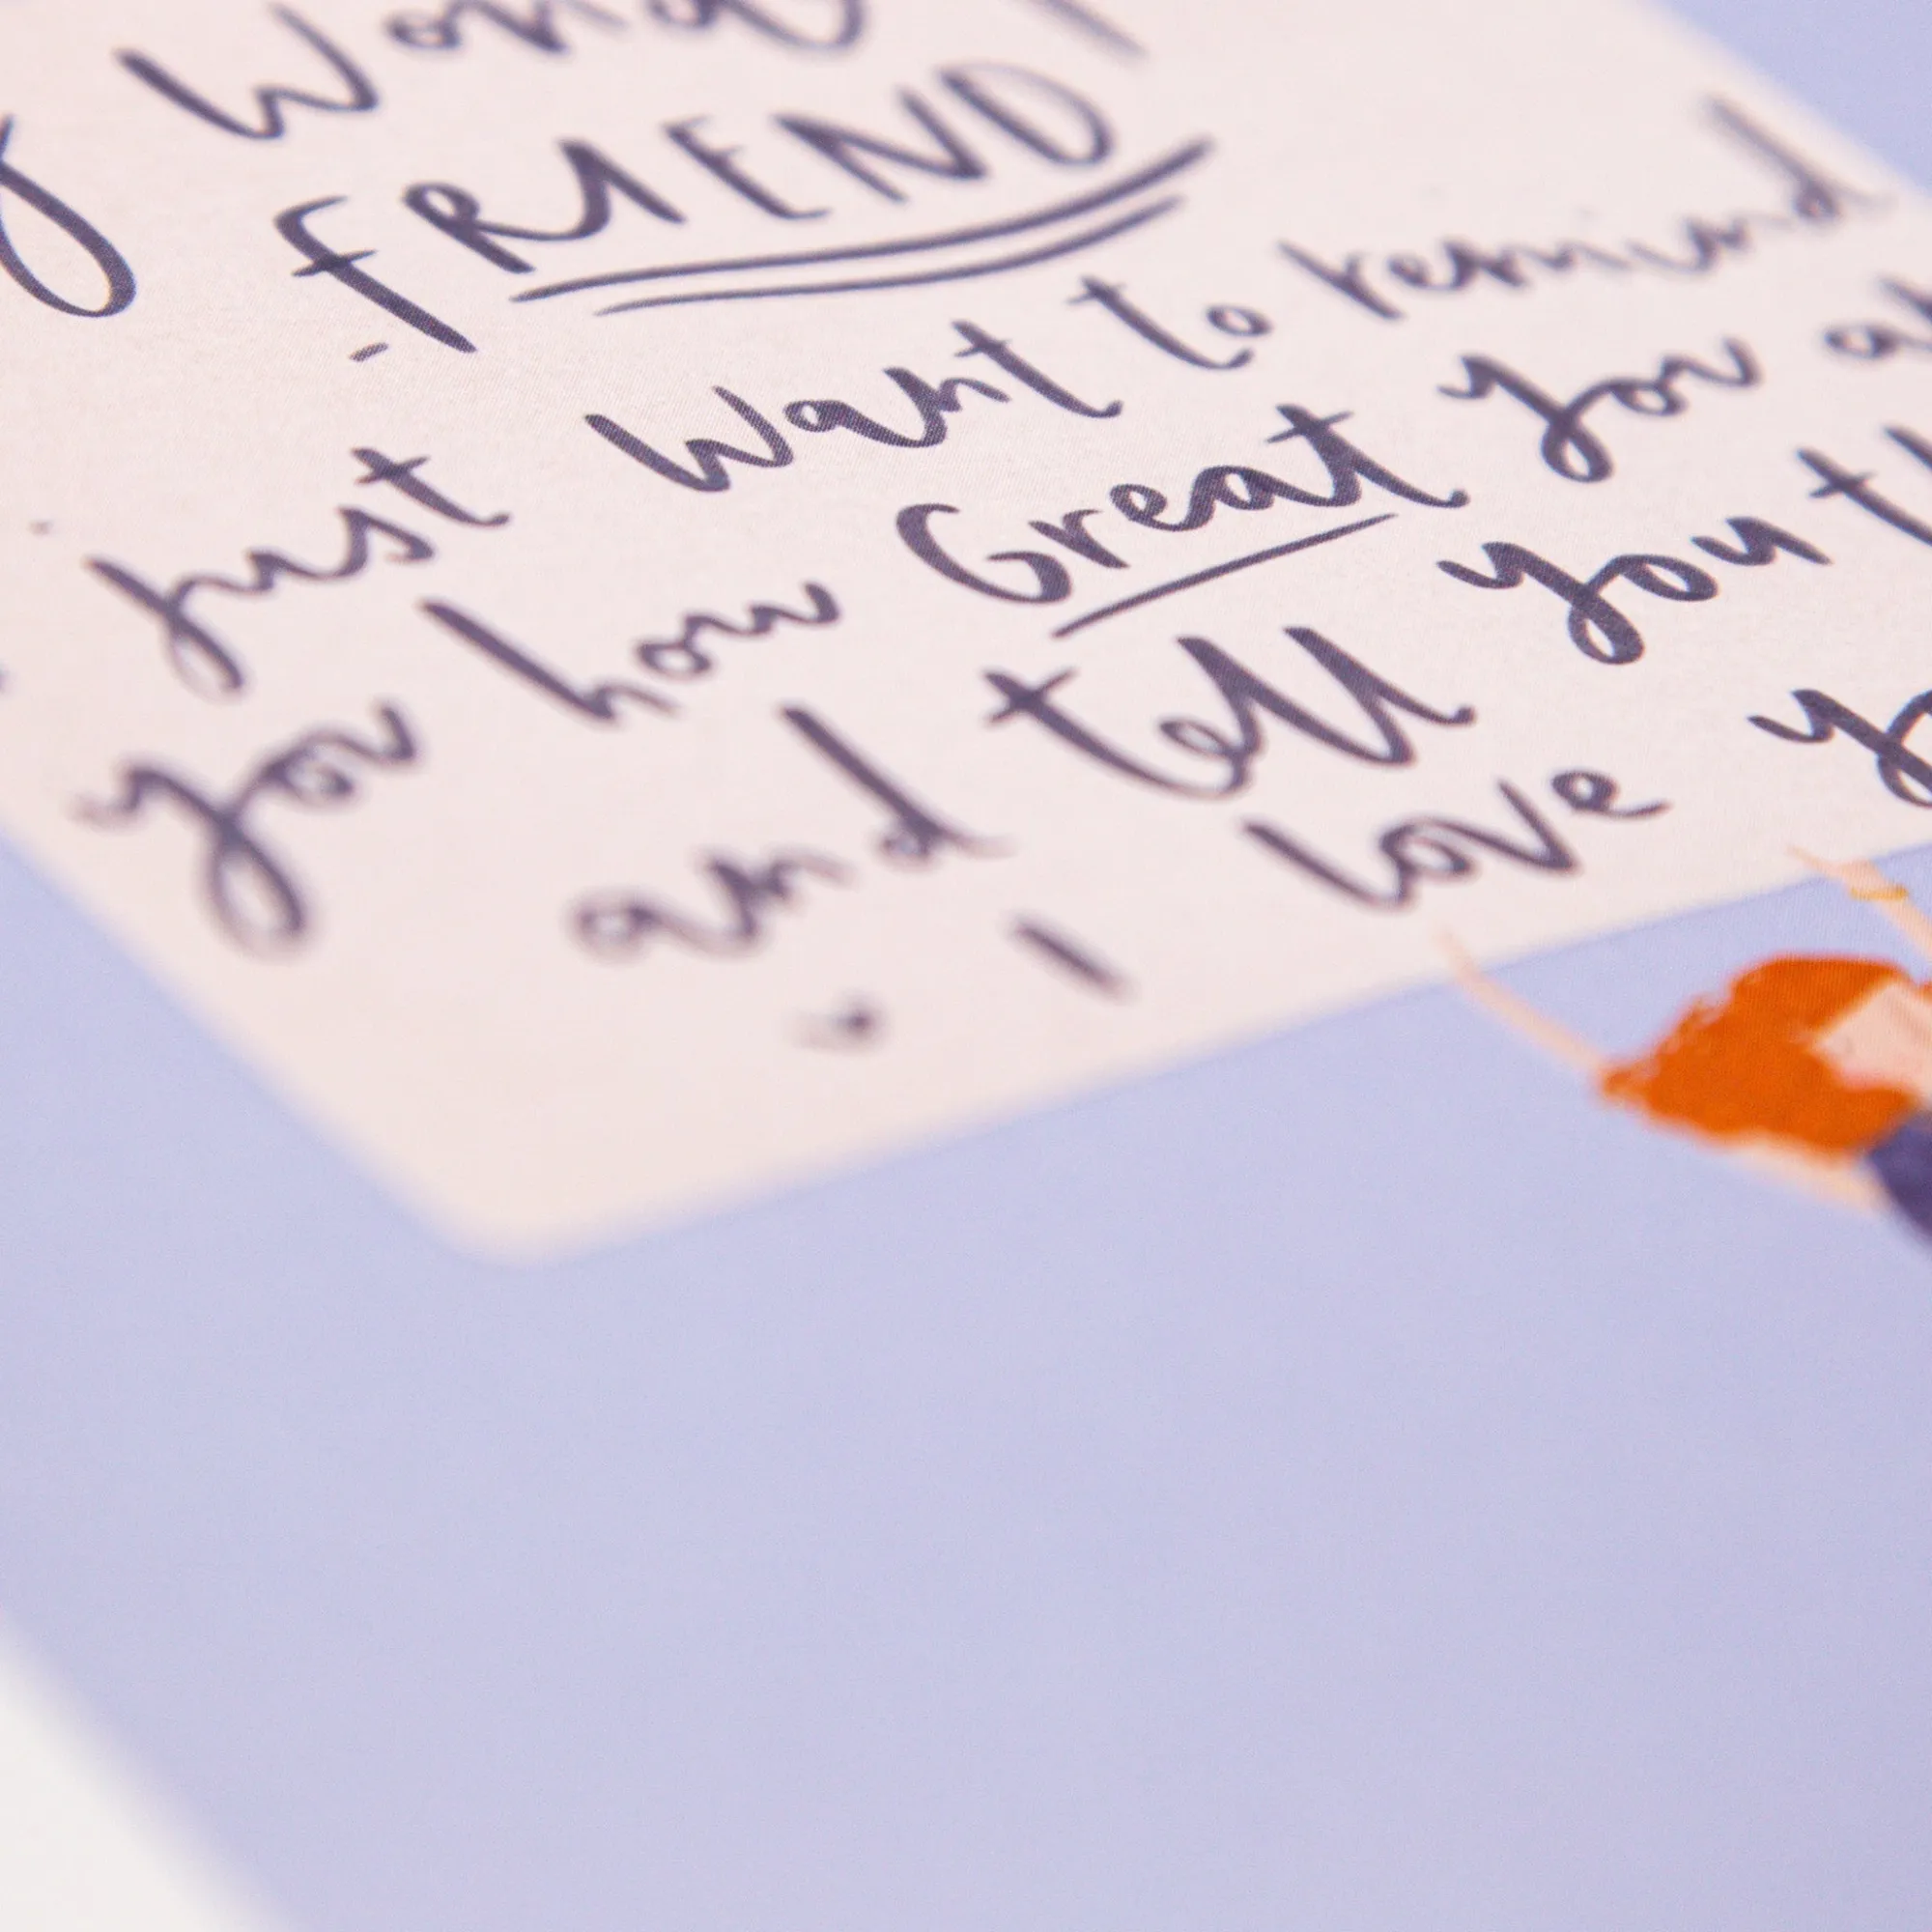 FRIEND
just want to remind
you how Great you
and tell you
I love